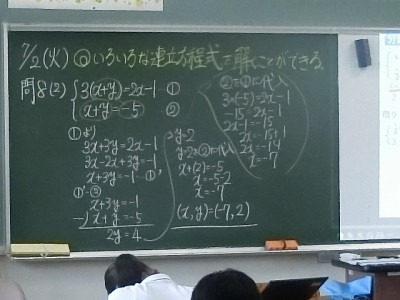 7/2(火) ◎いろいろな連立方程式を解くことができる。
問8(2) {3(x+y)=2x-1 ①
x+y=-5 ②
①より
3x+3y=2x-1
3x-2x+3y=-1
x+3y=-1 ①'
①'-②
x+3y=-1
-)x+y=-5
2y=4
y=2
y=2を②に代入
x+(2)=-5
x=-5-2
x=-7
(x,y)=(-7,2)
②を①に代入
3×(-5)=2x-1
-15=2x-1
2x-1=-15
2x=-15+1
2x=-14
x=-7